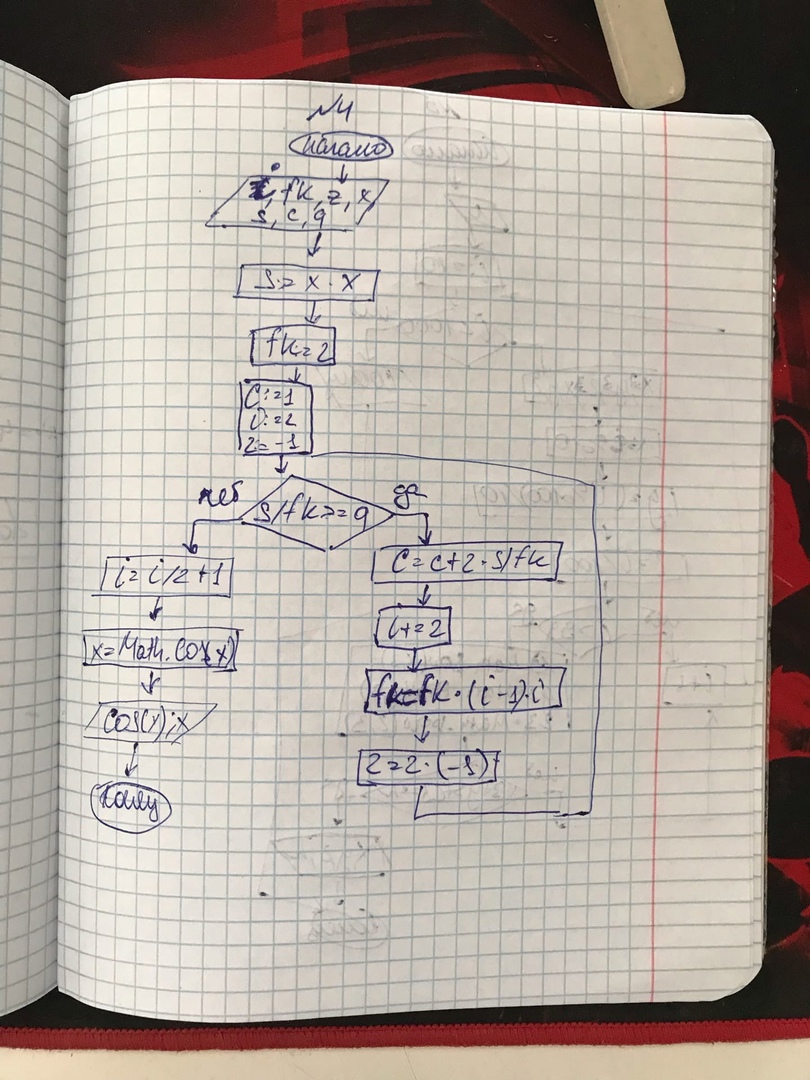 №4
начало
i, fk, z, x
s, c, q
s = x · x
fk = 2
C := 1
i := 2
z = -1
s/fk >= q
нет
да
i = i/2 + 1
x = Math.Cos(x)
cos(x); x
C = c + z · s/fk
i += 2
fk = fk · (i - 1) · i
z = z · (-1)